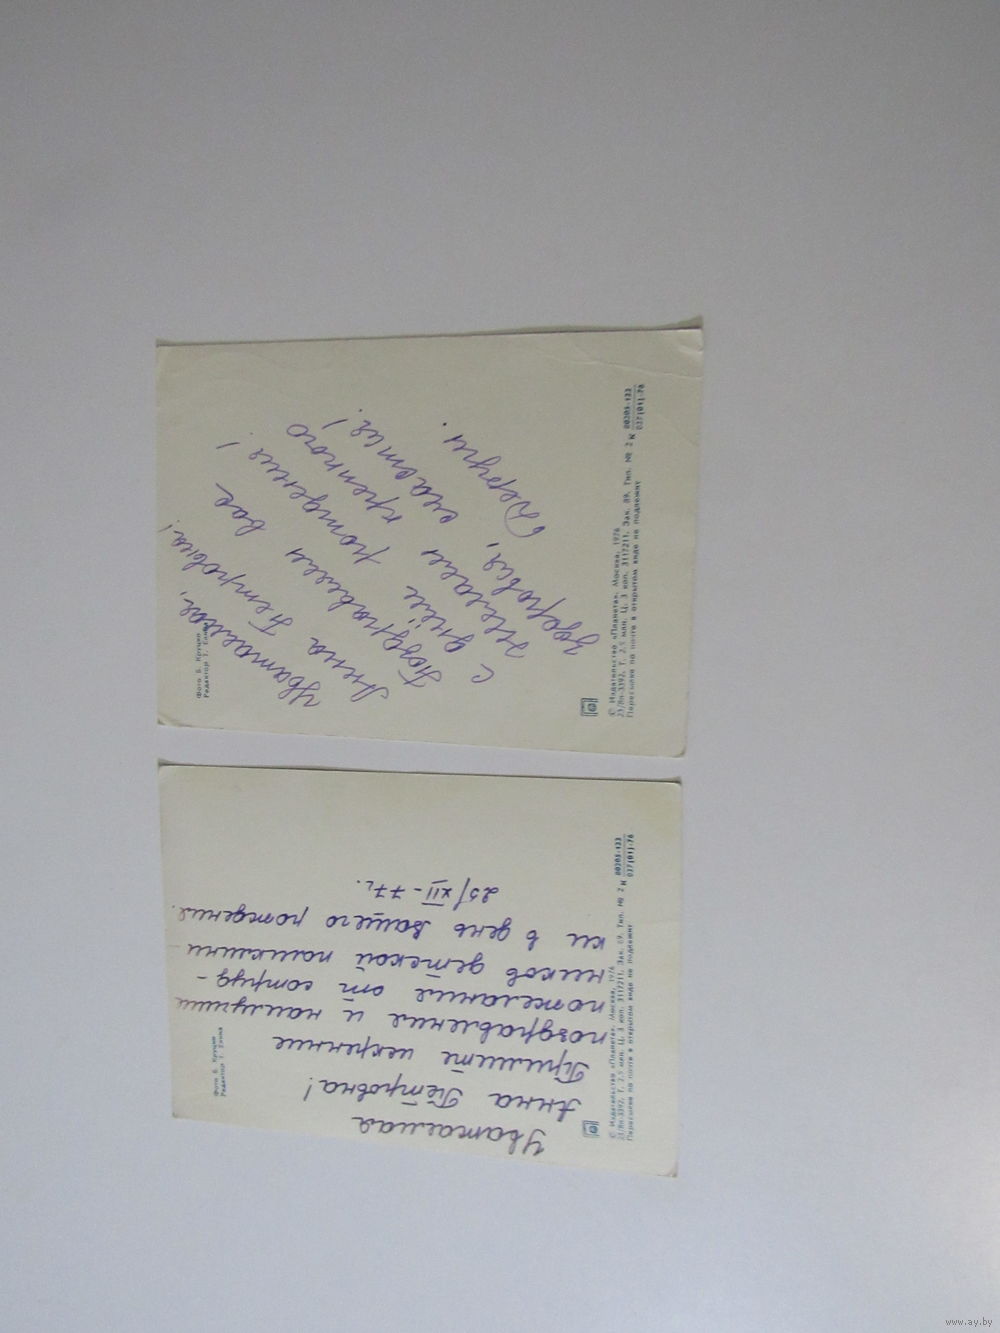 Уважаемая,
Анна Петровна!
Поздравляем вас
с днём рождения!
Желаем крепкого
здоровья, счастья!
Фото Б. Круцко
Редактор Т.
© Издательство «Планета». Москва, 1976
23/Вп-3392. Т. 2,5 млн. Ц. 3 коп. 3117211. Зак. 89. Тип. № 2 К 80205-133
027(01)-76
Пересылке по почте в открытом виде не подлежит
Уважаемая
Анна Петровна!
Примите искренние
поздравления и наилучшие
пожелание от сотруд-
ников детской поликлини-
ки в день вашего рождения.
25/XII-77г.
Фото Б. Круцко
Редактор Т.
© Издательство «Планета». Москва, 1976
23/Вп-3392. Т. 2,5 млн. Ц. 3 коп. 3117211. Зак. 89. Тип. № 2 К 80205-133
027(01)-76
Пересылке по почте в открытом виде не подлежит
www.ay.by